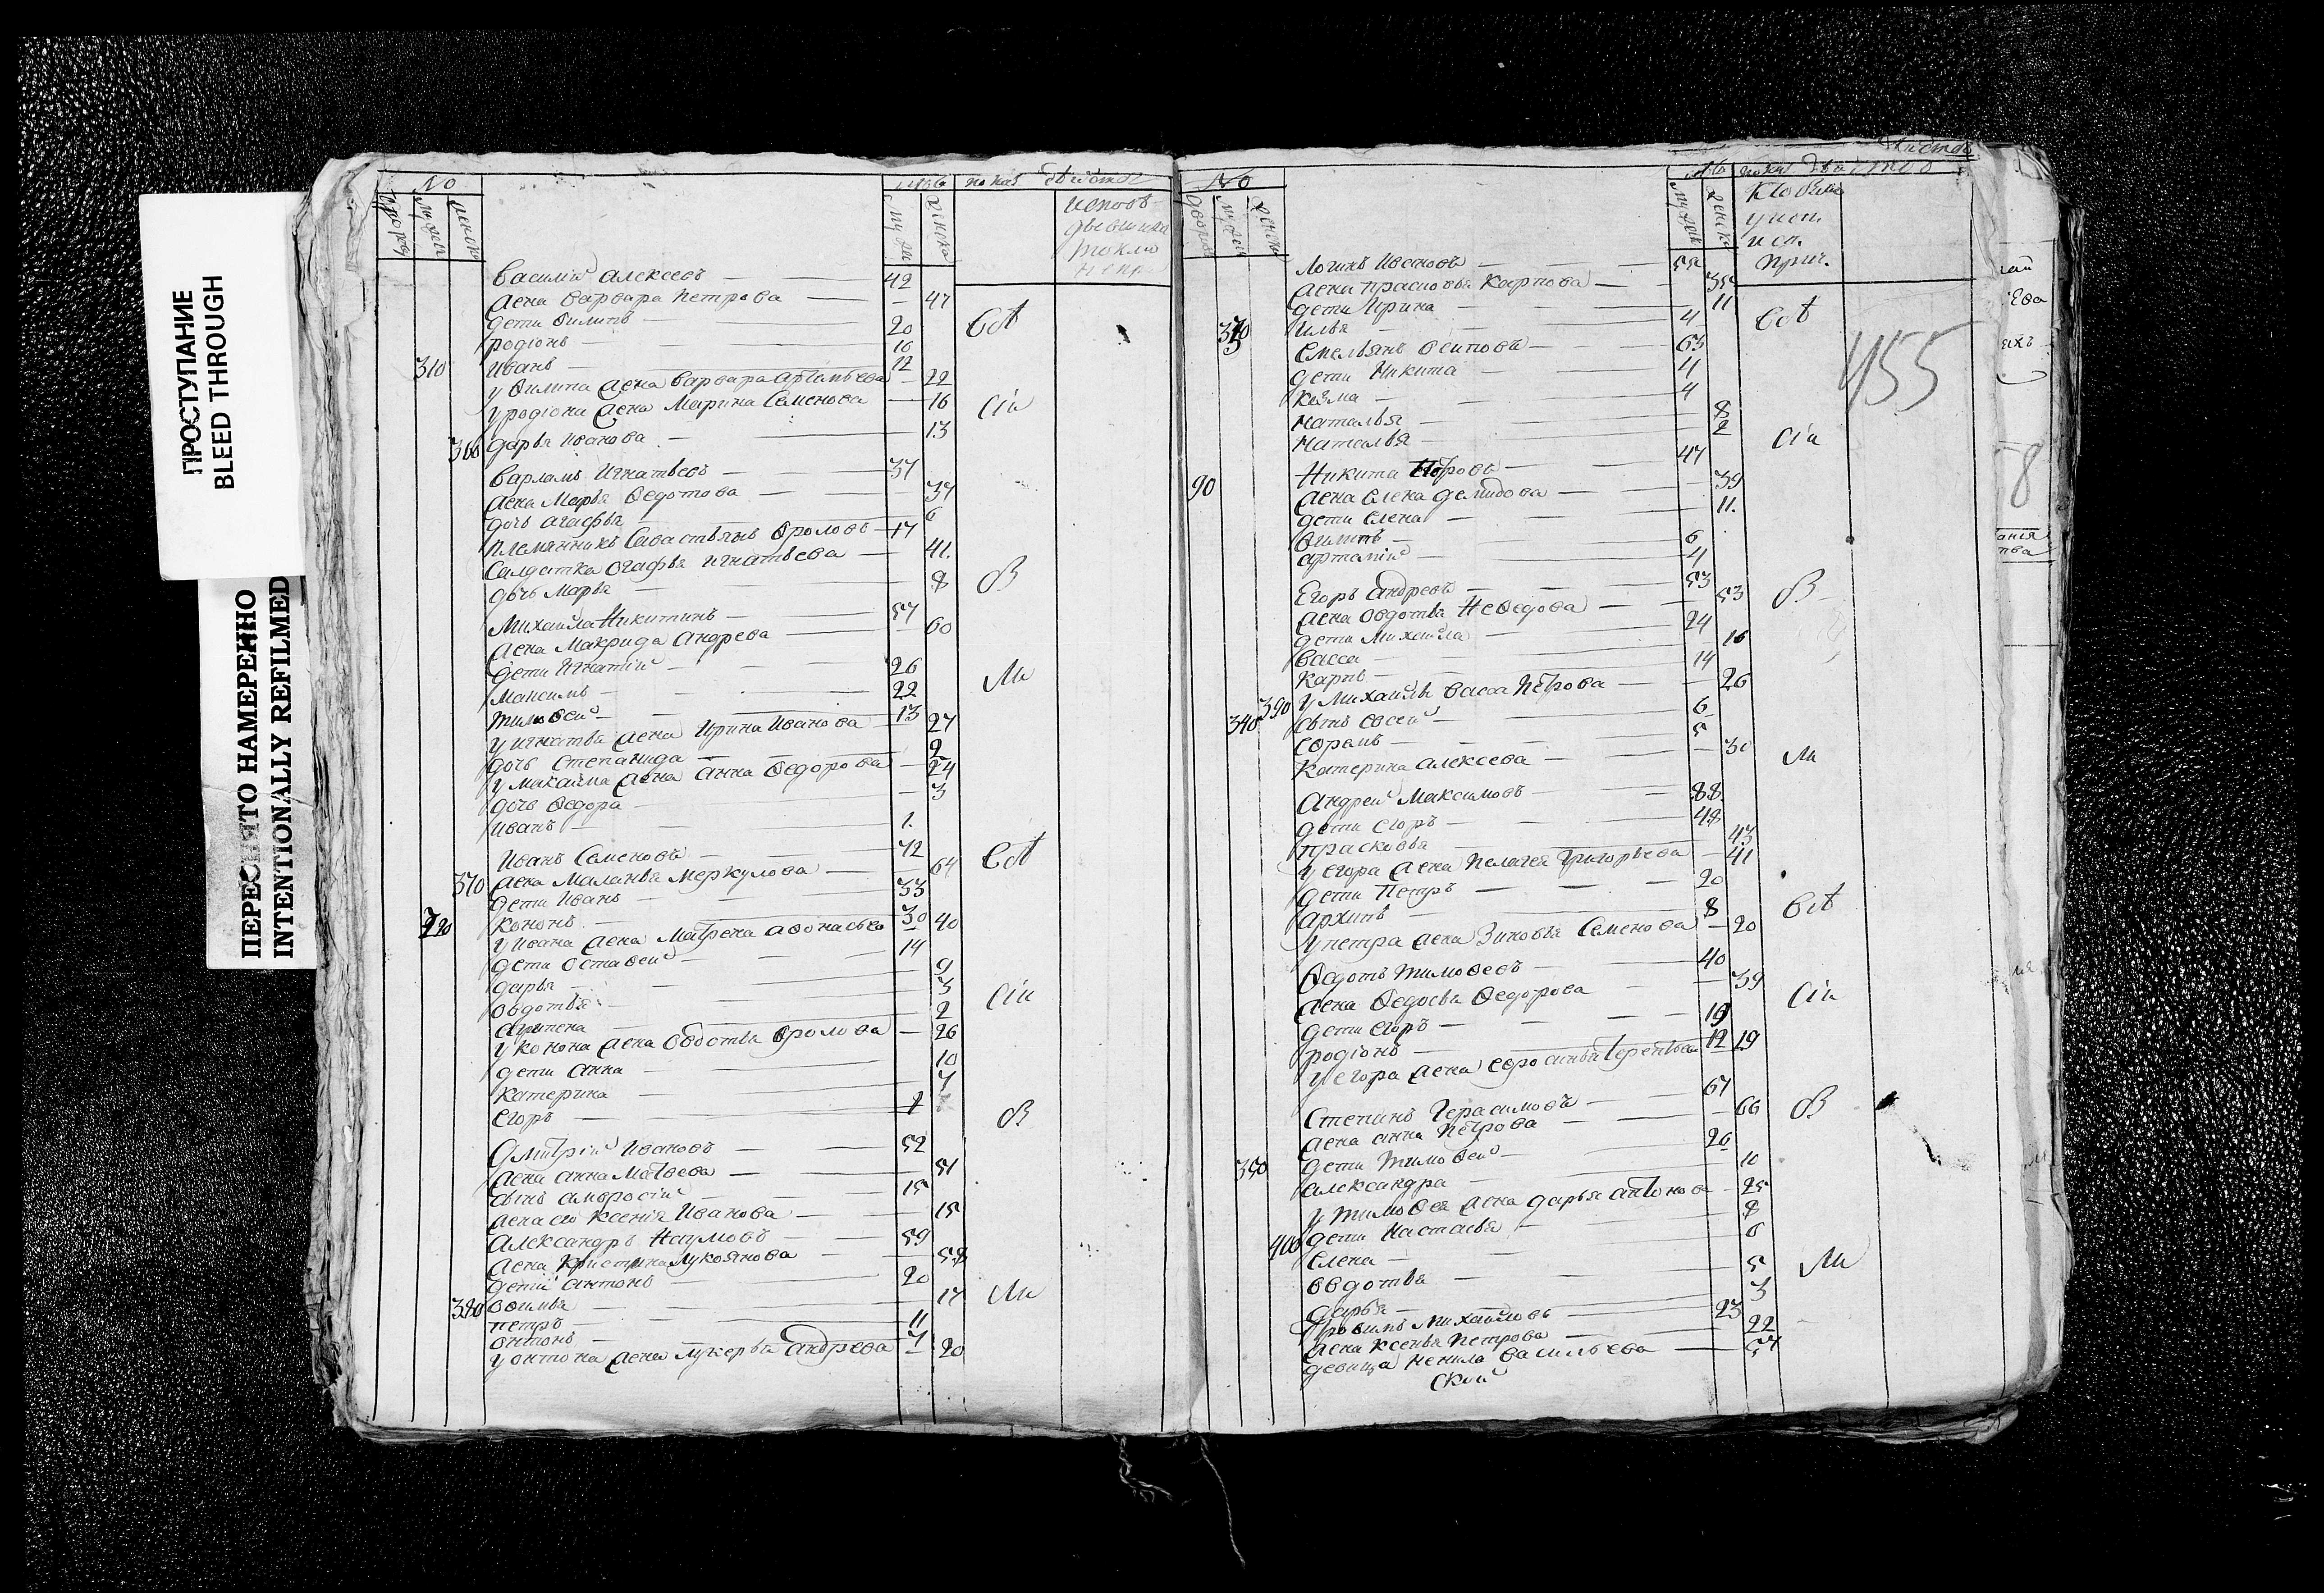 ПРОСТУПАНИЕ
BLEED THROUGH
ПЕРЕСНЯТО НАМЕРЕННО
INTENTIONALLY REFILMED
No
мужеи женски
Василиі Алексеевъ 42
жена Варвара Петрова 47
дети Филипъ 20
Родіонъ 16
310 Иванъ 12
у Филипа жена Варвара Артамьева 22
у Родіона жена Марина Семенова 16
360 Дарья Иванова 13
Варламъ Игнатьевъ 37
жена Марья Федотова 37
дочь Агафья 6
племянникъ Савастьянъ Фроловъ 17
Салдатка Огафья Игнатьева 41
дочь Марья 8
Михаила Никитинъ 57
жена Макрида Андрева 60
дети Игнатіи 26
Максимъ 22
Тимофеи 13
у Игнатья жена Ирина Иванова 27
дочь Степанида 9
у Максима жена Анна Федорова 24
дочь Федора 3
Иванъ 1
Иванъ Семеновъ 72
370 жена Маланья Меркулова 64
дети Иванъ 33
Кононъ 30
у Ивана жена Матрена Афонасьева 40
дети Остафеи 14
Дарья 9
Овдотья 3
Агрипена 2
у Конона жена Овдотья Фролова 26
дети Анна 10
Катерина 7
Егоръ
Дмитріи Ивановъ 52
жена Анна Матвева 51
сынъ Амвросіи 15
жена ево Ксенія Иванова 15
Александръ Наумовъ 59
жена Кристина Лукоянова 58
дети Антонъ 20
380 Софья 17
Петръ 11
Онтонъ 7
у Онтона жена Лукерья Андрева 20
Всѣ
сіи
в
ли
Всѣ
сіи
в
ли
No
Логинъ Ивановъ
жена Прасковья Карпова 35
дети Ирина 11
Илья 4
Емельянъ Осиповъ 63
дети Никита 4
Козма 4
Наталья 8
Наталья 2
90 Никита Петровъ 47
жена Елена Демидова 39
дети Елена 11
Филипъ 6
Артаміи 4
Егоръ Андревъ 53
жена Овдотья Нефедова 53
дети Михаила 24
Васса 16
Карпъ 14
390 у Михаилы Васса Петрова 26
340 сынъ Овсеи 6
Ефремъ 5
Катерина Алексеева 30
Андреи Максимовъ 88
дети Егоръ 48
Прасковья 43
у Егора жена Пелагея Григорьева 41
дети Петръ 20
Архипъ 8
у Петра жена Зиновья Семенова 20
Федотъ Тимофеевъ 40
жена Федосья Федорова 39
дети Егоръ 19
Родіонъ 12
у Егора жена Ефросинья Терентьева 19
Степанъ Герасимовъ 67
жена Анна Петрова 66
350 дети Тимофеи 26
Александра 10
у Тимофея жена Дарья Антонова 25
дети Настасья 8
400 Елена 6
Овдотья 5
Дарья 3
Трофимъ Михаиловъ 23
жена Ксенья Петрова 22
девица Ненила Васильева 57
Скои
Всѣ
455
сіи
в
ли
Всѣ
сіи
в
ли